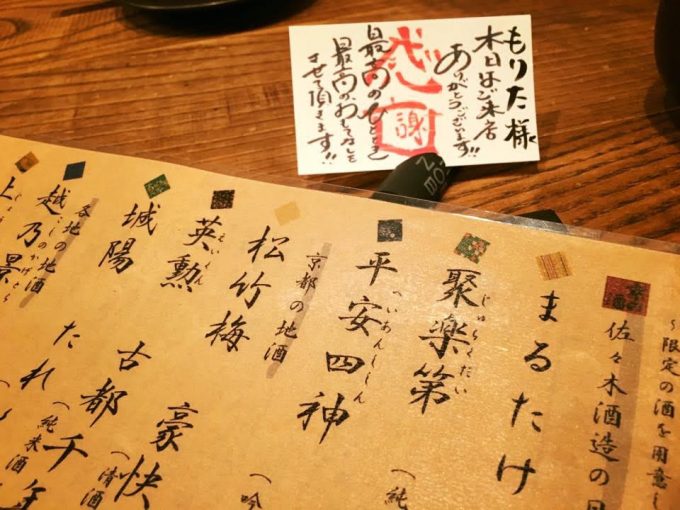 もりた様
本日はご来店
ありがとうございます!!
感謝
最高のひとときと
最高のおもてなしを
させて頂きます!!
~限定の酒を用意し
佐々木酒造の日
まるたけ
聚楽第
じゅらくだい
(純
平安四神
へいあんししん
(吟
京都の地酒
松竹梅
豪快
(清酒
英勲
えいくん
古都千年
(純米酒
城陽
たれ
各地の地酒
越乃景虎
こしのかげとら